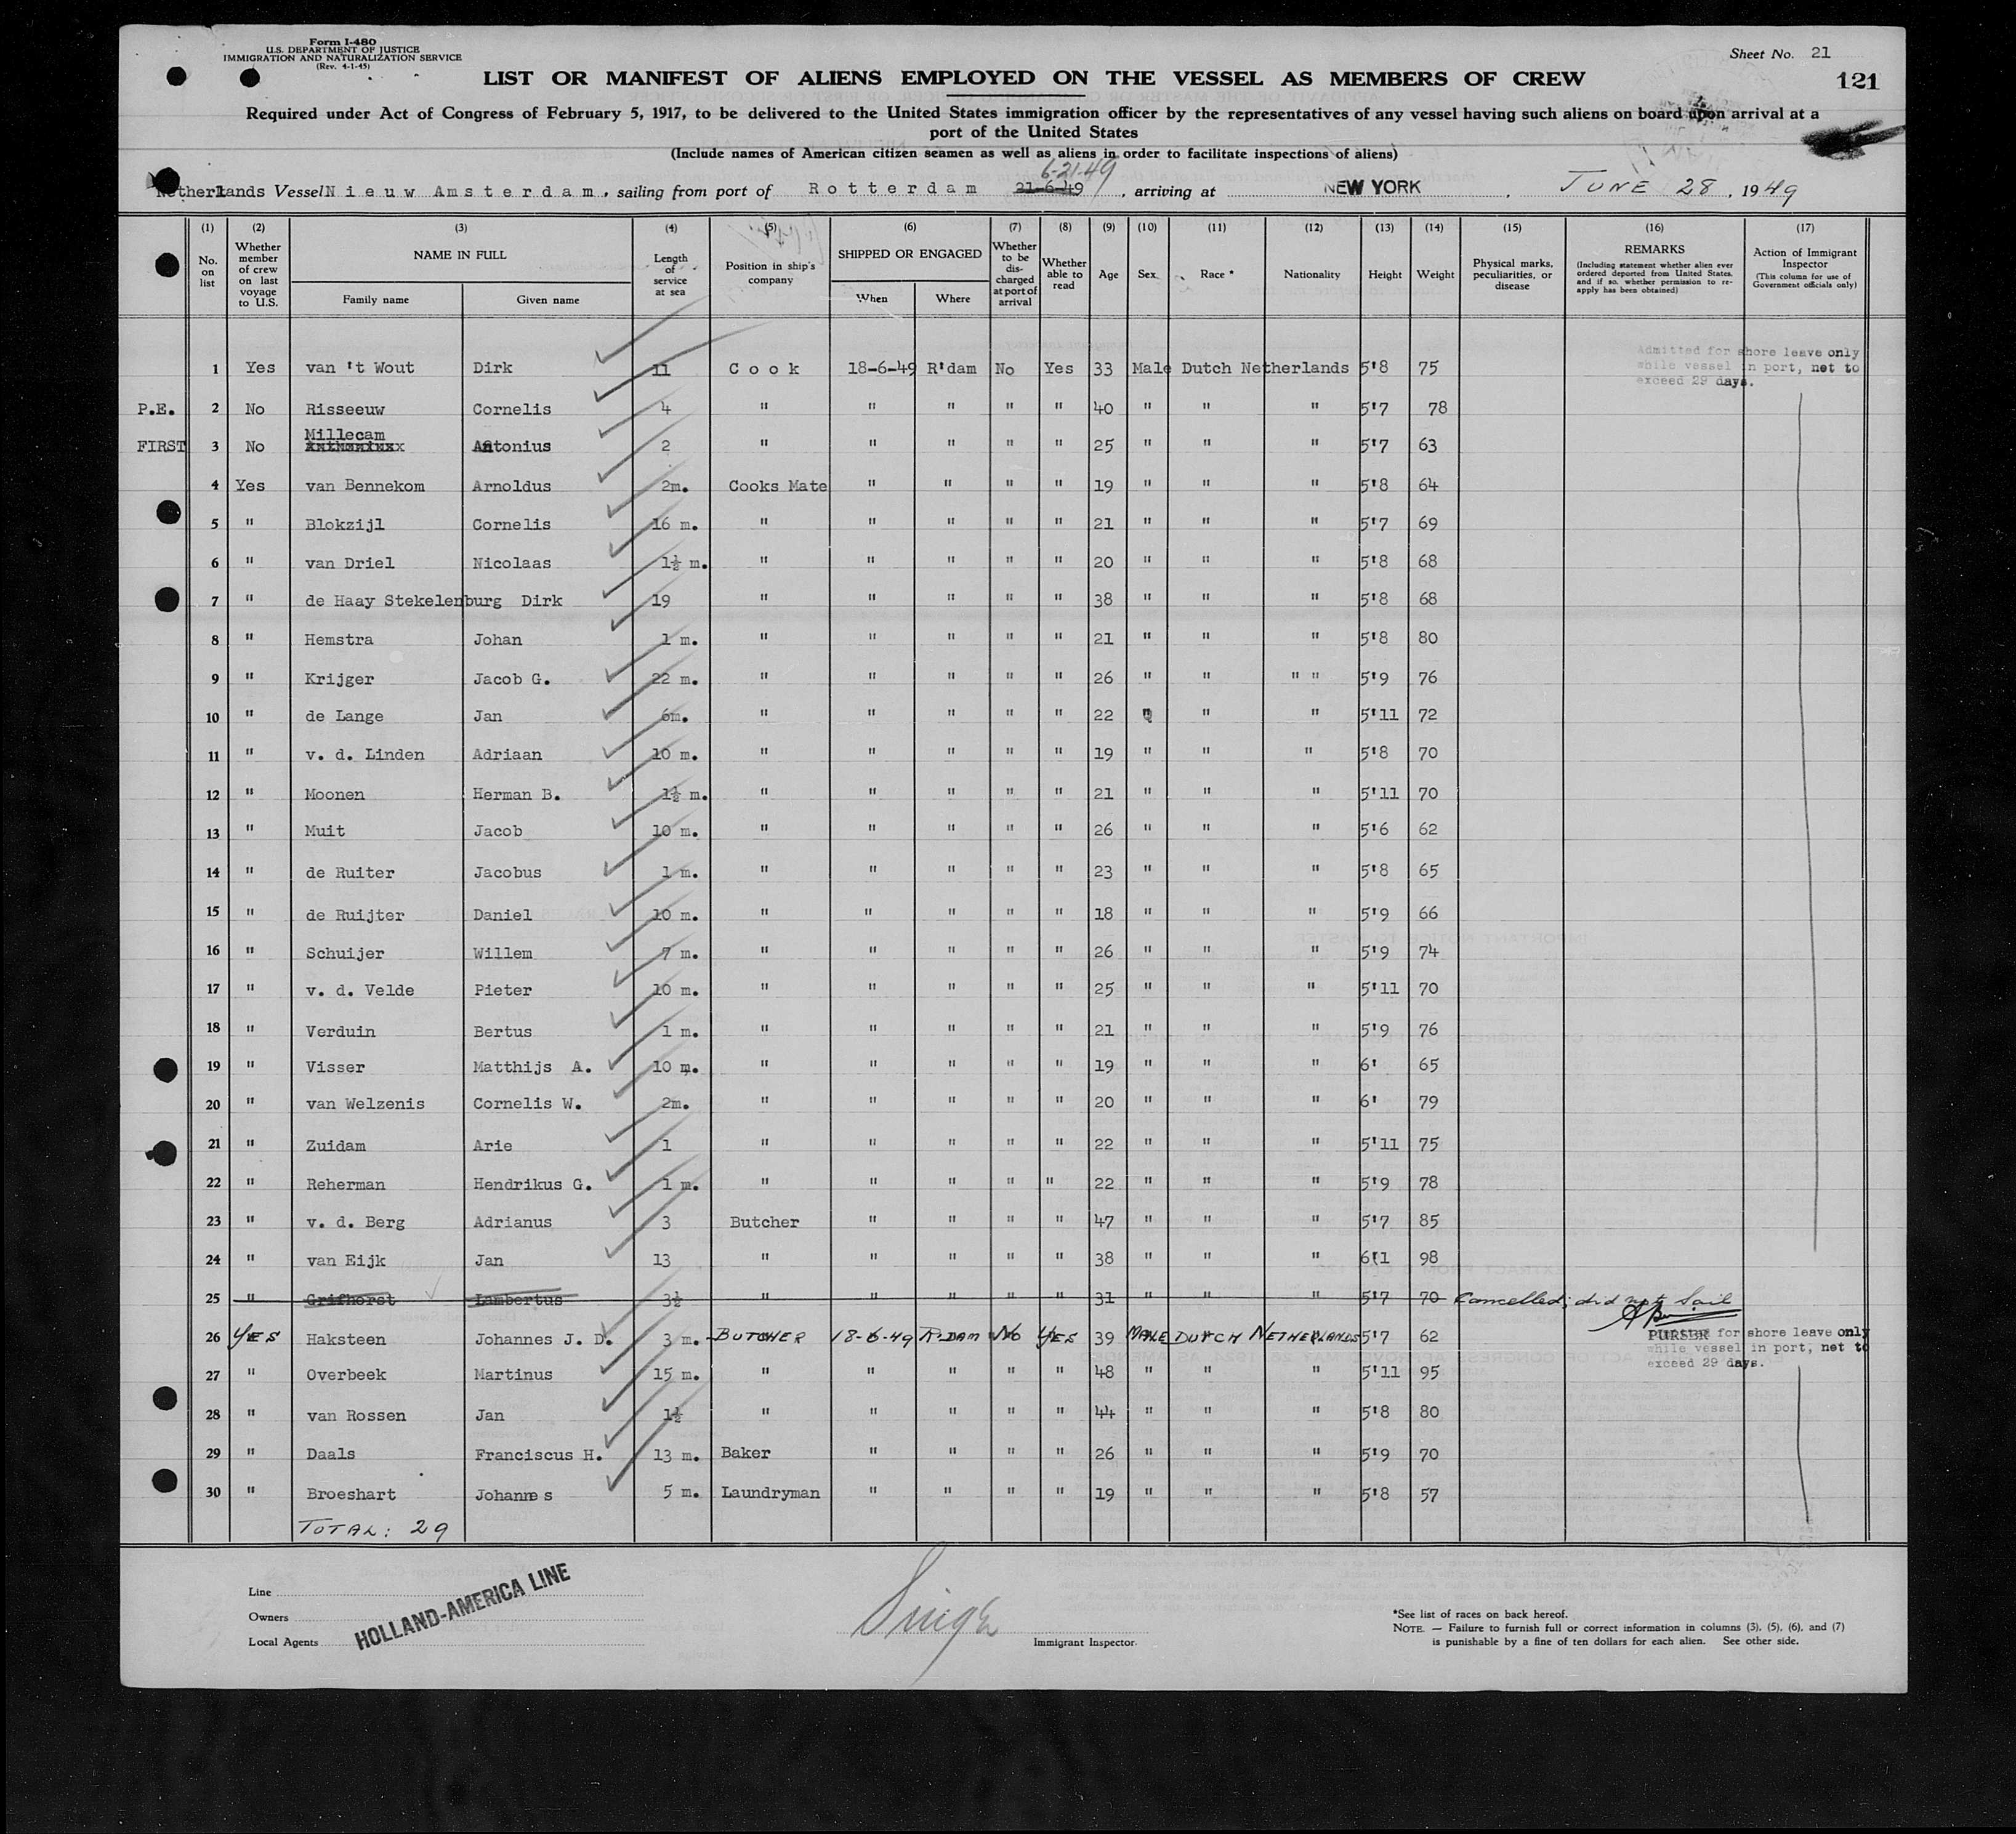 Form I-480
U.S. DEPARTMENT OF JUSTICE
IMMIGRATION AND NATURALIZATION SERVICE
(Rev. 4-1-45)
Sheet No. 21
121
LIST OR MANIFEST OF ALIENS EMPLOYED ON THE VESSEL AS MEMBERS OF CREW
Required under Act of Congress of February 5, 1917, to be delivered to the United States immigration officer by the representatives of any vessel having such aliens on board upon arrival at a
port of the United States
(Include names of American citizen seamen as well as aliens in order to facilitate inspections of aliens)
6-21-49
Netherlands Vessel Nieuw Amsterdam, sailing from port of Rotterdam 21-6-49, arriving at NEW YORK, JUNE 28, 1949
(1) (2) (3) (4) (5) (6) (7) (8) (9) (10) (11) (12) (13) (14) (15) (16) (17)
No. on list
Whether member of crew on last voyage to U.S.
NAME IN FULL
Family name Given name
Length of service at sea
Position in ship's company
SHIPPED OR ENGAGED
When Where
Whether to be discharged at port of arrival
Whether able to read
Age
Sex
Race *
Nationality
Height
Weight
Physical marks, peculiarities, or disease
REMARKS
(Including statement whether alien ever ordered deported from United States, and if so, whether permission to re-apply has been obtained)
Action of Immigrant Inspector
(This column for use of Government officials only)
1 Yes van 't Wout Dirk 11 Cook 18-6-49 R'dam No Yes 33 Male Dutch Netherlands 5'8 75
Admitted for shore leave only
while vessel in port, not to
exceed 29 days.
P.E. 2 No Risseeuw Cornelis 4 " " " " " 40 " " " 5'7 78
FIRST 3 No Millecam Antonius 2 " " " " " 25 " " " 5'7 63
4 Yes van Bennekom Arnoldus 2m. Cooks Mate " " " " 19 " " " 5'8 64
5 " Blokzijl Cornelis 16 m. " " " " " 21 " " " 5'7 69
6 " van Driel Nicolaas 1½ m. " " " " " 20 " " " 5'8 68
7 " de Haay Stekelenburg Dirk 19 " " " " " 38 " " " 5'8 68
8 " Hemstra Johan 1 m. " " " " " 21 " " " 5'8 80
9 " Krijger Jacob G. 22 m. " " " " " 26 " " " " 5'9 76
10 " de Lange Jan 6m. " " " " " 22 " " " 5'11 72
11 " v. d. Linden Adriaan 10 m. " " " " " 19 " " " 5'8 70
12 " Moonen Herman B. 1½ m. " " " " " 21 " " " 5'11 70
13 " Muit Jacob 10 m. " " " " " 26 " " " 5'6 62
14 " de Ruiter Jacobus 1 m. " " " " " 23 " " " 5'8 65
15 " de Ruijter Daniel 10 m. " " " " " 18 " " " 5'9 66
16 " Schuijer Willem 7 m. " " " " " 26 " " " 5'9 74
17 " v. d. Velde Pieter 10 m. " " " " " 25 " " " 5'11 70
18 " Verduin Bertus 1 m. " " " " " 21 " " " 5'9 76
19 " Visser Matthijs A. 10 m. " " " " " 19 " " " 6' 65
20 " van Welzenis Cornelis W. 2m. " " " " " 20 " " " 6' 79
21 " Zuidam Arie 1 " " " " " 22 " " " 5'11 75
22 " Reherman Hendrikus G. 1 m. " " " " " 22 " " " 5'9 78
23 " v. d. Berg Adrianus 3 Butcher " " " " 47 " " " 5'7 85
24 " van Eijk Jan 13 " " " " " 38 " " " 6'1 98
25 " Grifhorst Lambertus 3½ " " " " " 31 " " " 5'7 70 Cancelled; did not Sail
PURSER
26 YES Haksteen Johannes J. D. 3 m. BUTCHER 18-6-49 R-DAM NO YES 39 MALE DUTCH NETHERLANDS 5'7 62
for shore leave only
while vessel in port, not to
exceed 29 days.
27 " Overbeek Martinus 15 m. " " " " " 48 " " " 5'11 95
28 " van Rossen Jan 1½ " " " " " 44 " " " 5'8 80
29 " Daals Franciscus H. 13 m. Baker " " " " 26 " " " 5'9 70
30 " Broeshart Johannes 5 m. Laundryman " " " " 19 " " " 5'8 57
TOTAL: 29
Line
Owners
Local Agents
HOLLAND-AMERICA LINE
Immigrant Inspector.
*See list of races on back hereof.
NOTE. — Failure to furnish full or correct information in columns (3), (5), (6), and (7)
is punishable by a fine of ten dollars for each alien. See other side.